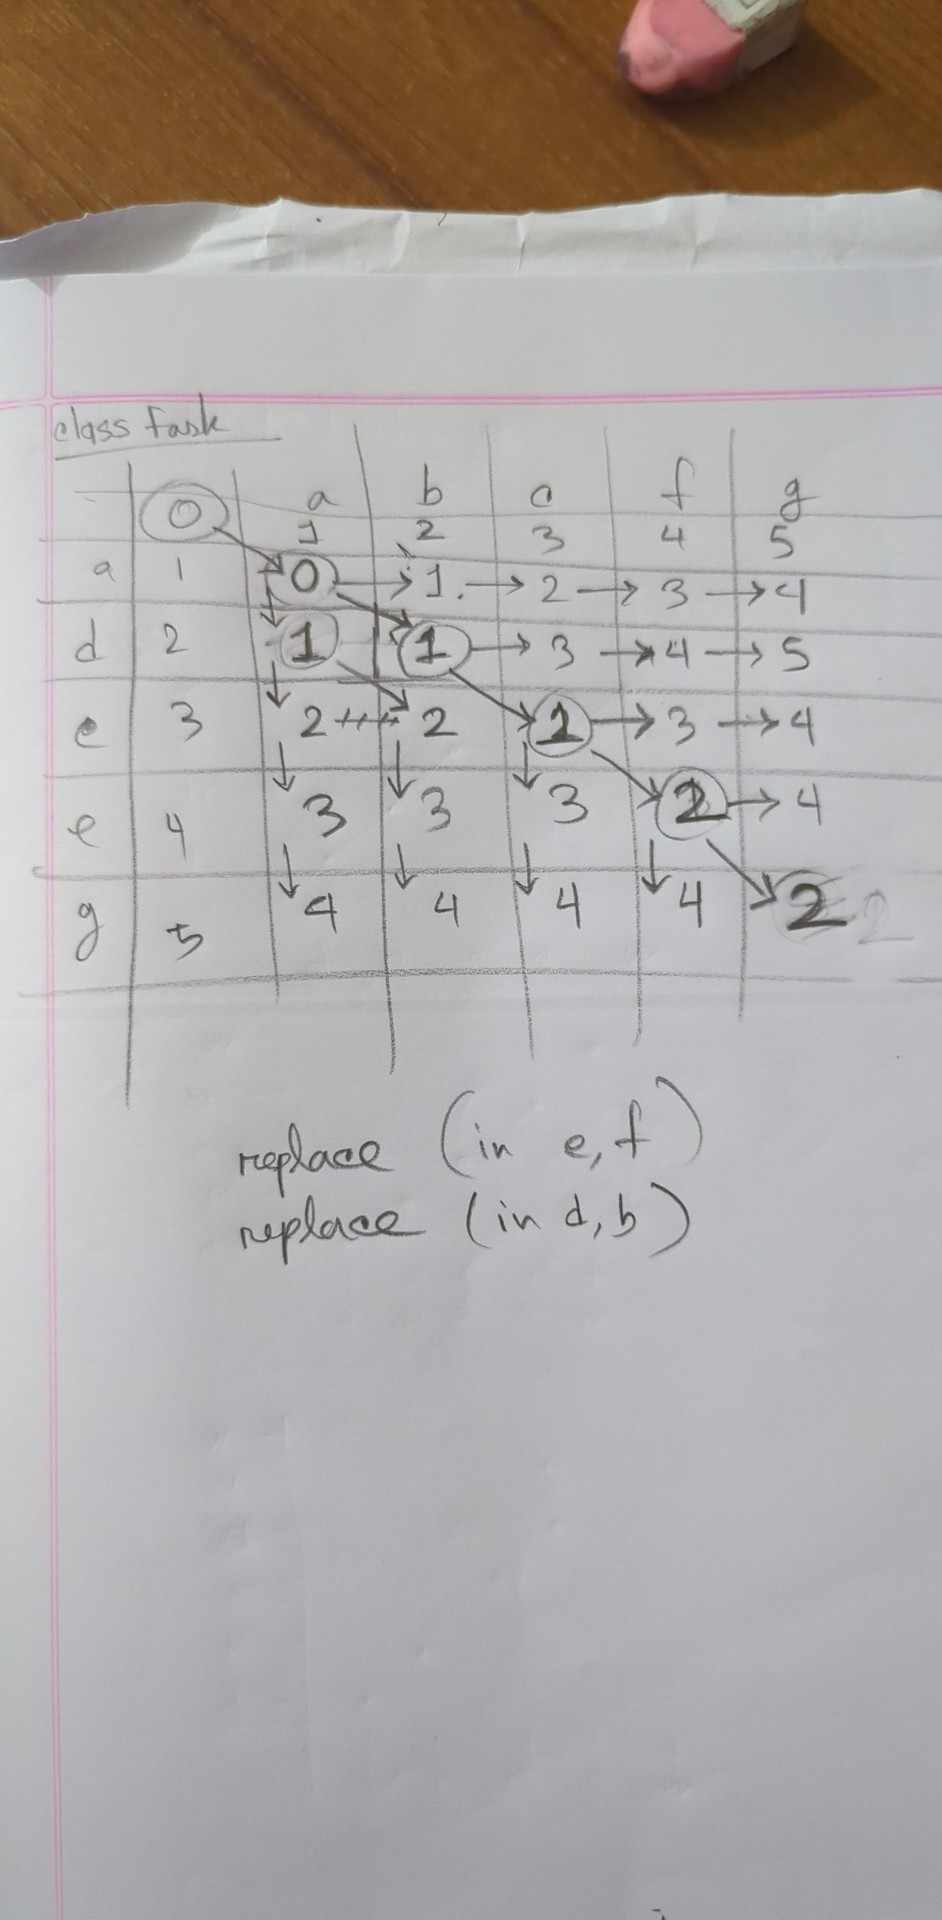 class task
a b c f g
0 1 2 3 4 5
a 1 0 → 1. → 2 → 3 → 4
d 2 1 1 → 3 → 4 → 5
e 3 2 2 1 → 3 → 4
e 4 3 3 3 2 → 4
g 5 4 4 4 4 2 2
replace (in e, f)
replace (in d, b)